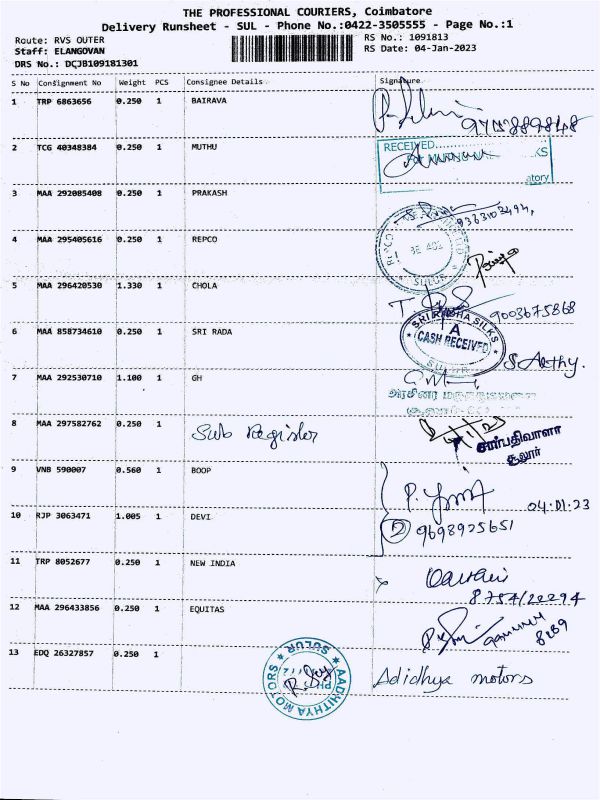 THE PROFESSIONAL COURIERS, Coimbatore
Delivery Runsheet - SUL - Phone No.:0422-3505555 - Page No.:1
Route: RVS OUTER
RS No.: 1091813
Staff: ELANGOVAN
RS Date: 04-Jan-2023
DRS No.: DCJB109181301
S No Consignment No Weight PCS Consignee Details Signature
1 TRP 6863656 0.250 1 BAIRAVA
2 TCG 40348384 0.250 1 MUTHU
RECEIVED
KS
atory
3 MAA 292085408 0.250 1 PRAKASH
9363103494,
4 MAA 295405616 0.250 1 REPCO
REPCO
SULUR
5 MAA 296420530 1.330 1 CHOLA
9003675868
6 MAA 858734610 0.250 1 SRI RADA
SILKS
CASH RECEIVED
SULUR
7 MAA 292530710 1.100 1 GH
8 MAA 297582762 0.250 1 Sub Register
சார்பதிவாளர்
சூலூர்
9 VNB 590007 0.560 1 BOOP
04.01.23
10 RJP 3063471 1.005 1 DEVI
2 9698925651
11 TRP 8052677 0.250 1 NEW INDIA
12 MAA 296433856 0.250 1 EQUITAS
8289
13 EDQ 26327857 0.250 1
AADHITHYA MOTORS
SULUR
Adidhya motors